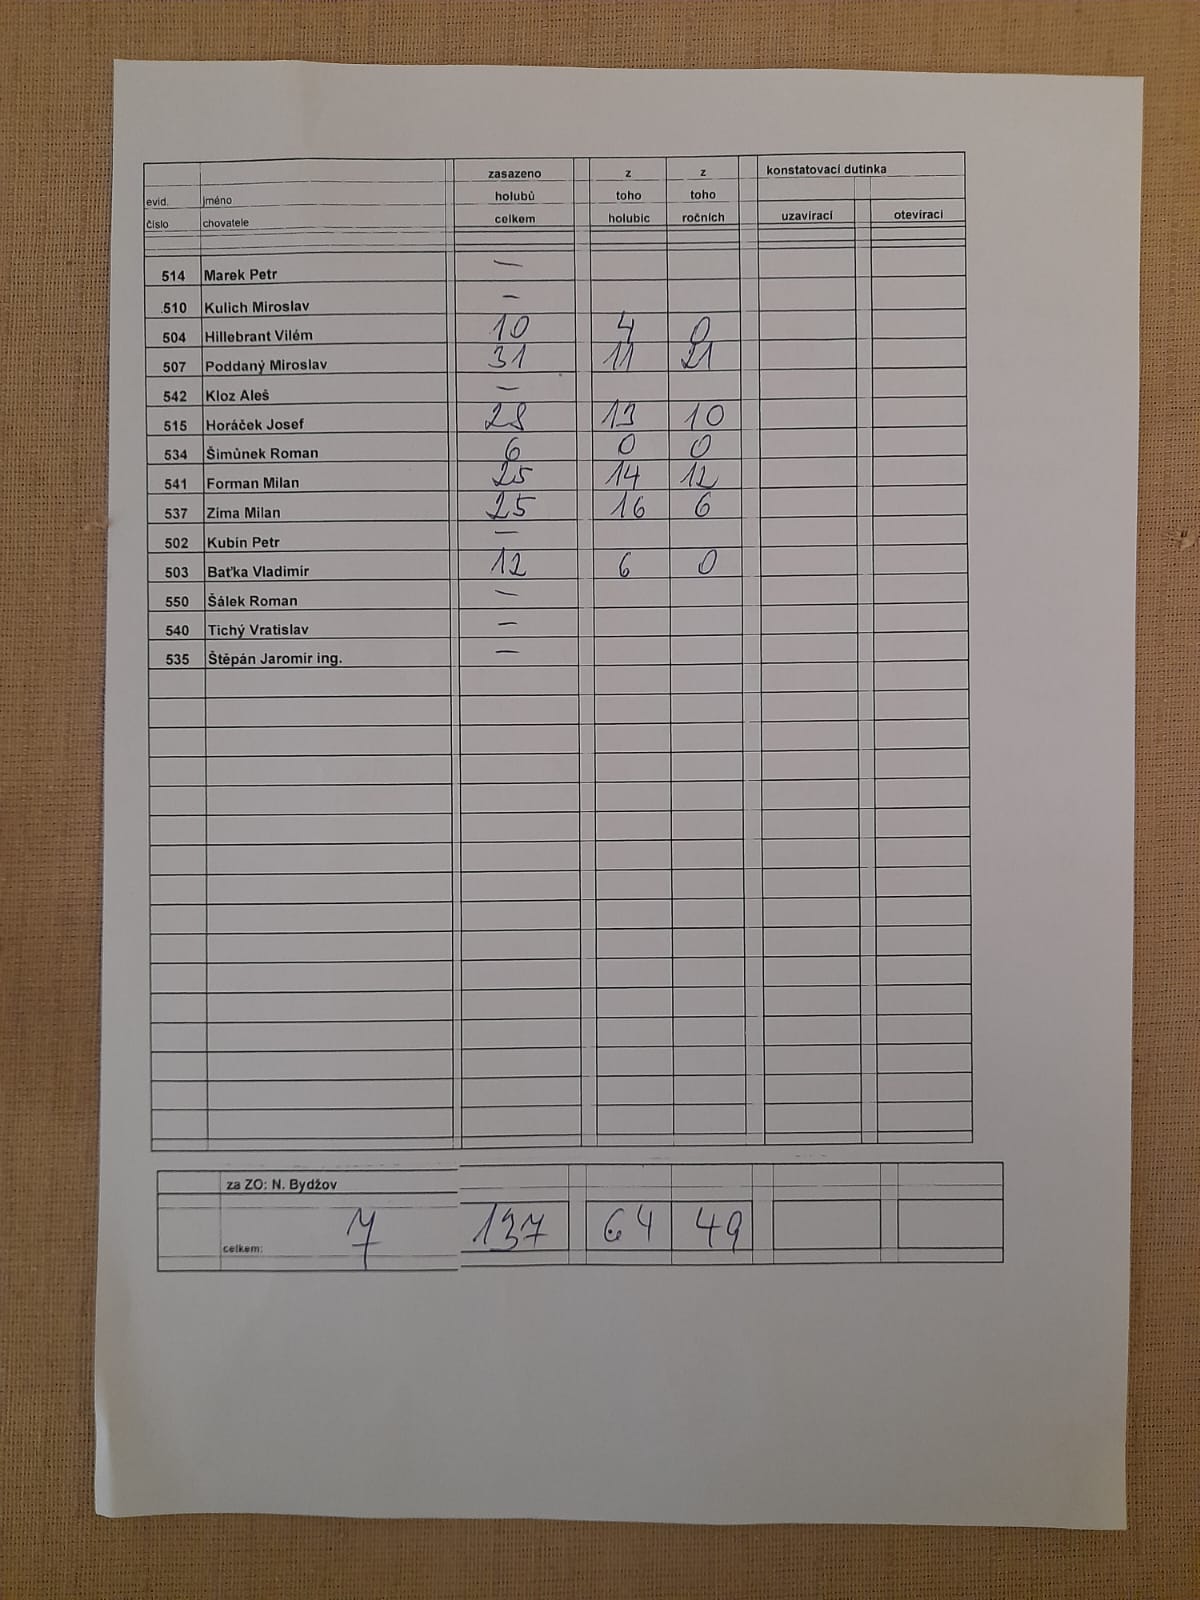 zasazeno z z konstatovací dutinka
evid. jméno holubů toho toho
číslo chovatele celkem holubic ročních uzavírací otevírací
514 Marek Petr —
510 Kulich Miroslav —
504 Hillebrant Vilém 10 4 0
507 Poddaný Miroslav 31 11 21
542 Kloz Aleš —
515 Horáček Josef 28 13 10
534 Šimůnek Roman 6 0 0
541 Forman Milan 25 14 12
537 Zíma Milan 25 16 6
502 Kubín Petr —
503 Baťka Vladimír 12 6 0
550 Šálek Roman —
540 Tichý Vratislav —
535 Štěpán Jaromír ing. —
za ZO: N. Bydžov
celkem: 7 137 64 49